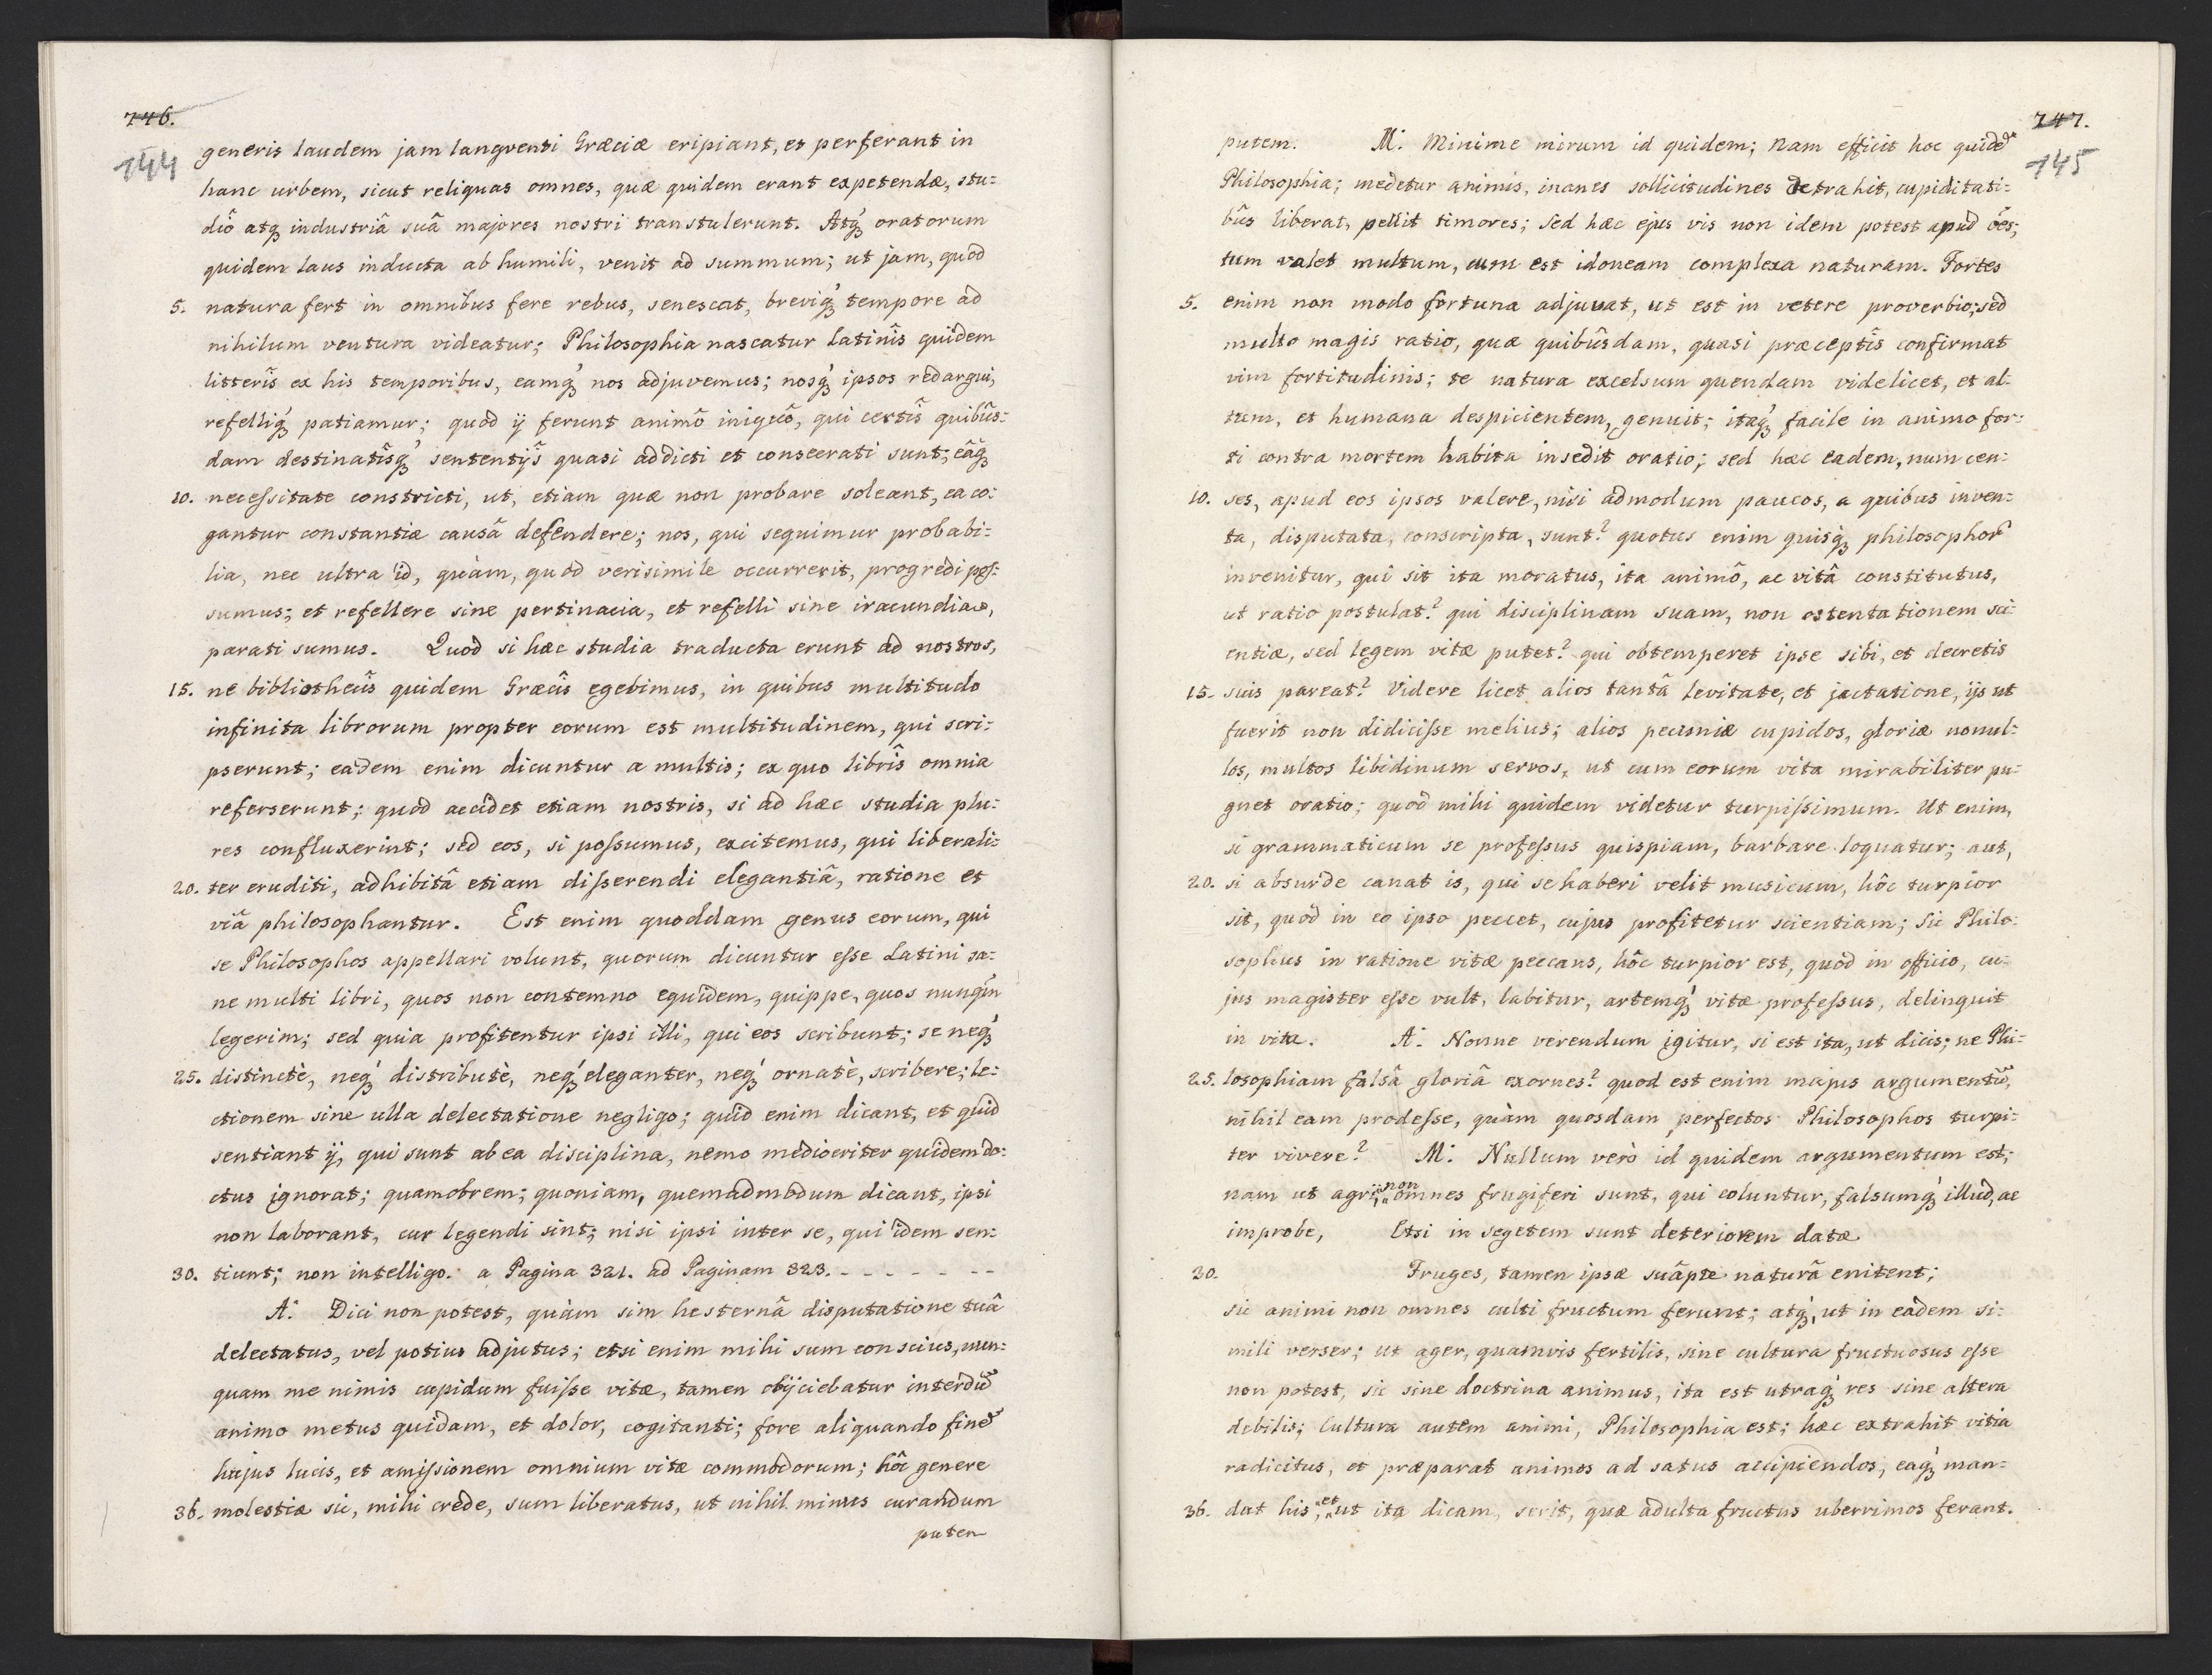 746.
744
generis laudem jam langventi Græciæ eripiant, et perferant in
hanc urbem, sicut reliquas omnes, quæ quidem erant expetendæ, stu:
diô atq; industriâ suâ majores nostri transtulerunt. Atq́; oratorum
quidem laus inducta ab humili, venit ad summum; ut jam, quod
5. natura fert in omnibus fere rebus, senescat, breviq́; tempore ad
nihilum ventura videatur; Philosophia nascatur Latinîs quidem
litterîs ex his temporibus, eamq́; nos adjuvemus; nosq́; ipsos redargui,
refelliq́; patiamur; quod ij ferunt animô iniquô, qui certîs quibûs:
dam destinatîsq́; sententijs quasi addicti et consecrati sunt; eâq́;
10. necessitate constricti, ut, etiam quæ non probare soleant, ea co:
gantur constantiæ causâ defendere; nos, qui sequimur probabi:
lia, nec ultra id, quàm, quod verisimile occurrerit, progredi pos:
sumus; et refellere sine pertinacia, et refelli sine iracundia,
parati sumus. Quod si hæc studia traducta erunt ad nostros,
15. ne bibliothecîs quidem Græcîs egebimus, in quibus multitudo
infinita librorum propter eorum est multitudinem, qui scri:
pserunt; eadem enim dicuntur a multis; ex quo librîs omnia
referserunt; quod accidet etiam nostris, si ad hæc studia plu:
res confluxerint; sed eos, si possumus, excitemus, qui liberali:
20. ter eruditi, adhibitâ etiam disserendi elegantiâ, ratione et
viâ philosophantur. Est enim quoddam genus eorum, qui
se Philosophos appellari volunt, quorum dicuntur esse Latini sa:
ne multi libri, quos non contemno equidem, quippe, quos nunq́m
legerim; sed quia profitentur ipsi illi, qui eos scribunt; se neq́;
25. distinctè, neq́; distributè, neq́; eleganter, neq́; ornatè, scribere; le:
ctionem sine ulla delectatione negligo; quid enim dicant, et quid
sentiant ij, qui sunt ab ea disciplina, nemo mediocriter quidem do:
ctus ignorat; quamobrem; quoniam, quemadmodum dicant, ipsi
non laborant, cur legendi sint; nisi ipsi inter se, qui idem sen:
30. tiunt; non intelligo. a Pagina 321. ad Paginam 323. - - - - - - -
A: Dici non potest, quàm sim hesternâ disputatione tuâ
delectatus, vel potius adjutus; etsi enim mihi sum conscius, nun:
quam me nimis cupidum fuisse vitæ, tamen objiciebatur interdū
animo metus quidam, et dolor, cogitanti; fore aliquando finē
hujus lucis, et amissionem omnium vitæ commodorum; hôc genere
36. molestiæ sic, mihi crede, sum liberatus, ut nihil minus curandum
putem
747.
745
putem. M: Minime mirum id quidem; nam efficit hoc quidē
Philosophia; medetur animis, inanes sollicitudines detrahit, cupiditati:
bûs liberat, pellit timores; sed hæc ejus vis non idem potest apud oēs;
tum valet multum, cum est idoneam complexa naturam. Fortes
5. enim non modo fortuna adjuvat, ut est in vetere proverbio; sed
multo magis ratio, quæ quibûsdam, quasi præceptîs confirmat
vim fortitudinis; te natura excelsum quendam videlicet, et al:
tum, et humana despicientem, genuit; itaq́; facile in animo for:
ti contra mortem habita insedit oratio; sed hæc eadem, num cen:
10. ses, apud eos ipsos valere, nisi admodum paucos, a quibus inven:
ta, disputata, conscripta, sunt? quotus enim quisq́; philosophor̄
invenitur, qui sit ita moratus, ita animô, ac vitâ constitutus,
ut ratio postulat? qui disciplinam suam, non ostentationem sci:
entiæ, sed legem vitæ putet? qui obtemperet ipse sibi, et decretis
15. suis pareat? Videre licet alios tantâ levitate, et jactatione, ijs ut
fuerit non didicisse melius; alios pecuniæ cupidos, gloriæ nonul:
los, multos libidinum servos, ut cum eorum vita mirabiliter pu:
gnet oratio; quod mihi quidem videtur turpissimum. Ut enim,
si grammaticum se professus quispiam, barbare loquatur; aut,
20. si absurde canat is, qui se haberi velit musicum, hôc turpior
sit, quod in eo ipso peccet, cujus profitetur scientiam; sic Philo:
sophus in ratione vitæ peccans, hôc turpior est, quod in officio, cu:
jus magister esse vult, labitur, artemq́; vitæ professus, delinquit
in vita. A: Nonne verendum igitur, si est ita, ut dicis; ne Phi:
25. losophiam falsâ gloriâ exornes? quod est enim majus argumentū,
nihil eam prodesse, quàm quosdam perfectos Philosophos turpi:
ter vivere? M: Nullum verò id quidem argumentum est;
nam ut agri, non omnes frugiferi sunt, qui coluntur, falsumq́; illud, ac
improbe, Etsi in segetem sunt deteriorem datæ
30. Fruges, tamen ipsæ suâpte naturâ enitent;
sic animi non omnes culti fructum ferunt; atq́;, ut in eâdem si:
mili verser; ut ager, quamvis fertilis, sine cultura fructuosus esse
non potest, sic sine doctrina animus, ita est utraq́; res sine altera
debilis; Cultura autem animi, Philosophia est; hæc extrahit vitia
radicitus, et præparat animos ad satus accipiendos, eaq́; man:
36. dat his, et ut ita dicam, serit, quæ adulta fructus uberrimos ferant.